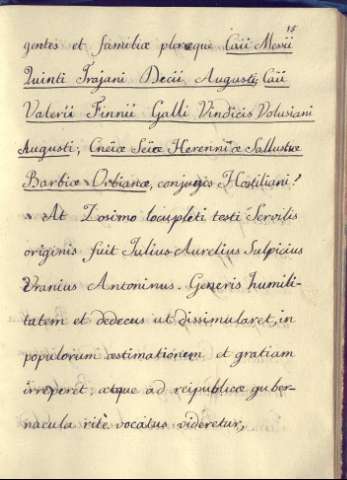 15
gentes et familiæ pleræque Caii Messii
Quinti Trajani Decii Augusti, Caii
Valerii Finnii Galli Vindicis Volusiani
Augusti, Cneiæ Seiæ Herenniæ Sallustiæ
Barbiæ Orbianæ, conjugis Hostiliani?
At Zosimo locupleti testi Servilis
originis fuit Julius Aurelius Sulpicius
Uranius Antoninus. Generis humili-
tatem et dedecus ut dissimularet, in
populorum æstimationem et gratiam
irreperet, atque ad reipublicæ guber-
nacula ritè vocatus videretur,